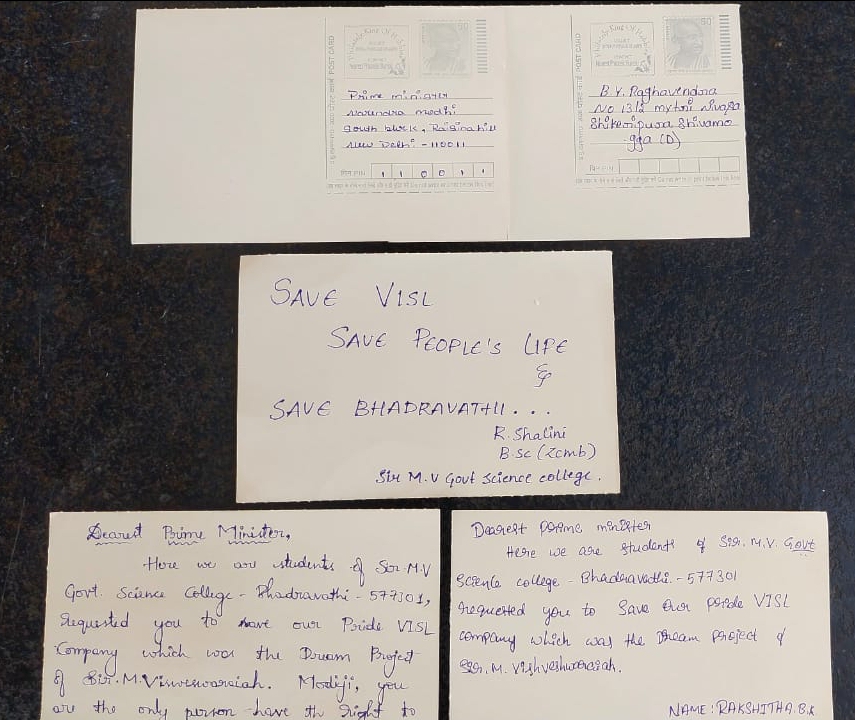 POST CARD
50
Prime minister
Narendra modhi
South block, Raisina hill
New Delhi - 110011
पिन PIN
1 1 0 0 1 1
POST CARD
50
B.Y. Raghavendra
No 13/2 mytri nivasa
Shikaripura Shivamo
gga (D)
पिन PIN
SAVE VISL
SAVE PEOPLE'S LIFE
&
SAVE BHADRAVATHI...
R. Shalini
B.sc (Zcmb)
Sir M.V Govt Science college.
Dearest Prime Minister,
Here we are students of Sir M.V
Govt. Science College - Bhadravathi - 577301,
Requested you to save our Pride VISL
Company which was the Dream Project
of Sir.M.Visveswaraiah. Modiji, you
are the only person have th right to
Dearest prime minister
Here we are students of Sir. M.V. Govt
Science college - Bhadravathi - 577301
Requested you to Save our pride VISL
company which was the Dream project of
Sir. M. Vishveshwaraiah.
NAME : RAKSHITHA.B.R